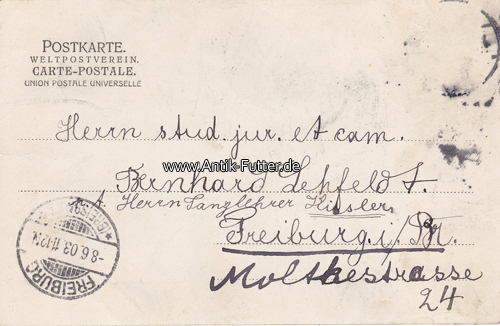 POSTKARTE.
WELTPOSTVEREIN.
CARTE-POSTALE.
UNION POSTALE UNIVERSELLE
Herrn stud. jur. et cam.
www.Antik-Futter.de
Bernhard Lehfeldt.
Herrn Sanglehrer
Freiburg i/Br.
Moltkestrasse
24
FREIBURG
-8.6.03.11-12V.
(BREISGAU)